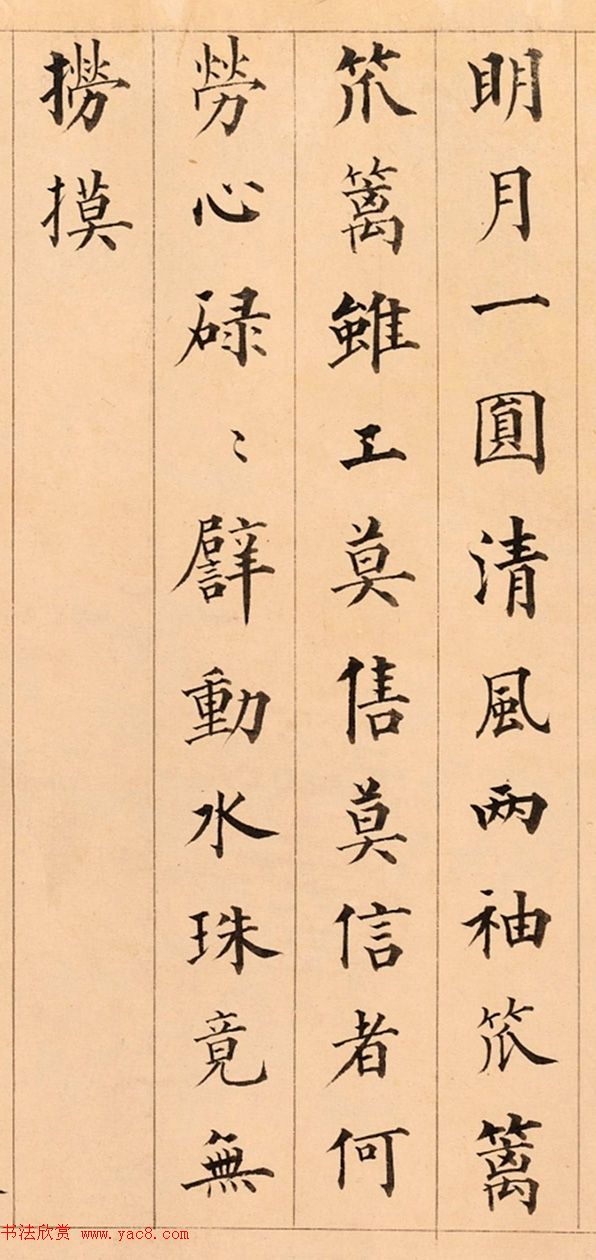 明月一圓清風两袖笊篱
笊篱雖工莫售莫信者何
勞心碌〻譬動水珠竟無
撈摸
书法欣赏 www.yac8.com